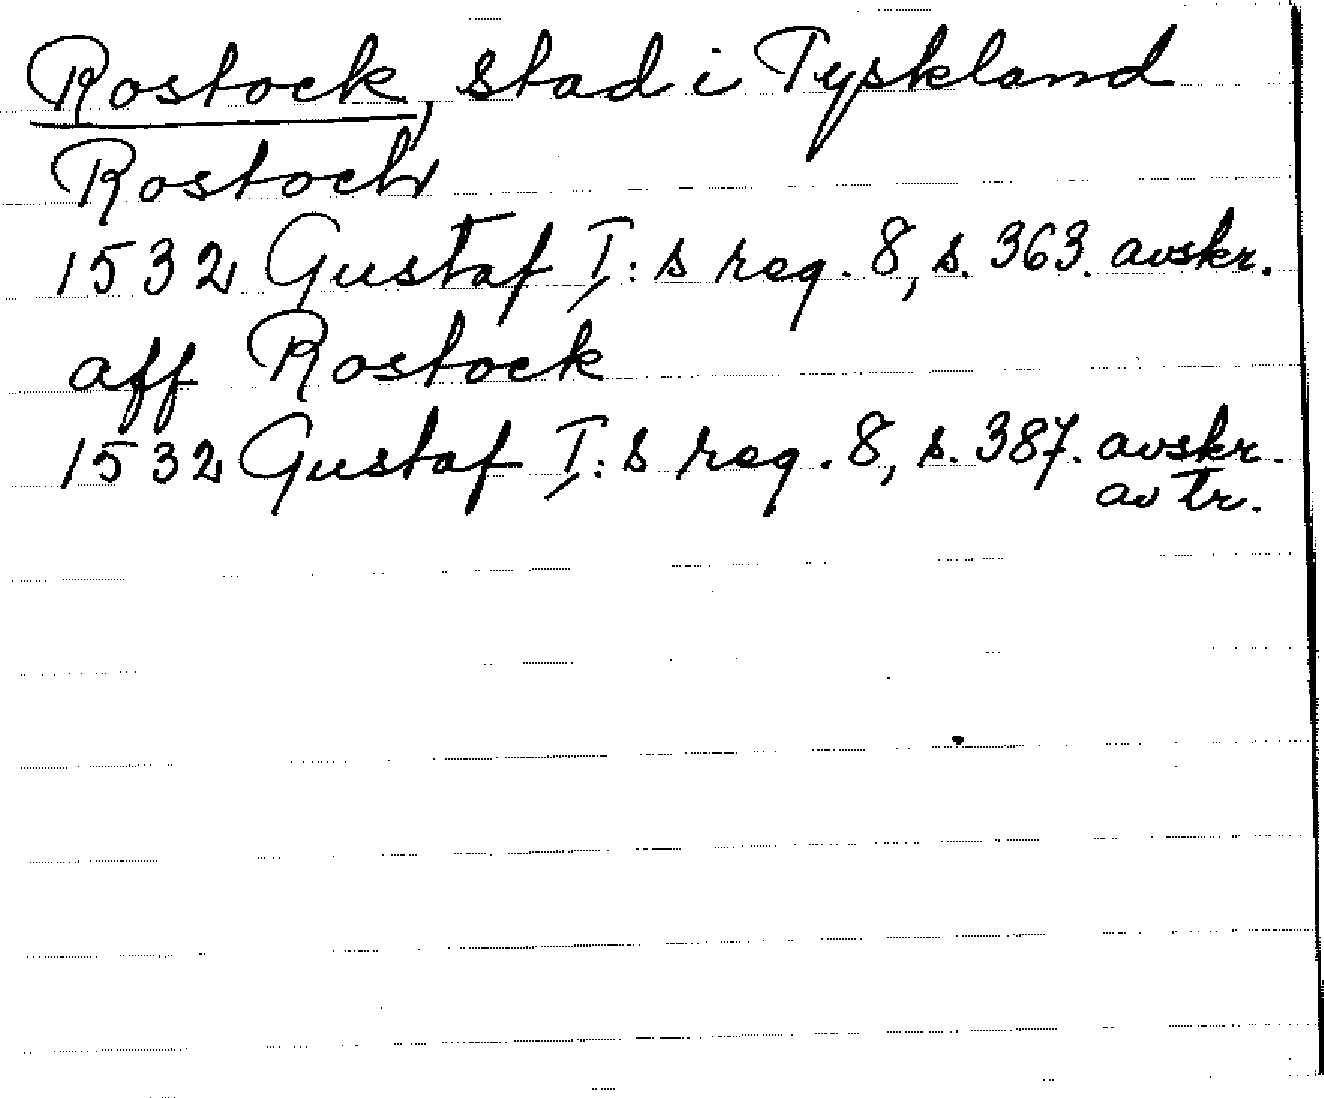 Rostock, stad i Tyskland
Rostoch
1532 Gustaf I:s reg. 8, s. 363. avskr.
aff Rostock
1532 Gustaf I:s reg. 8, s. 387. avskr.
av tr.